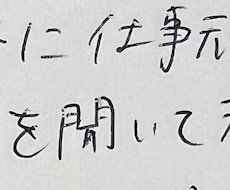 に仕事
を聞いて